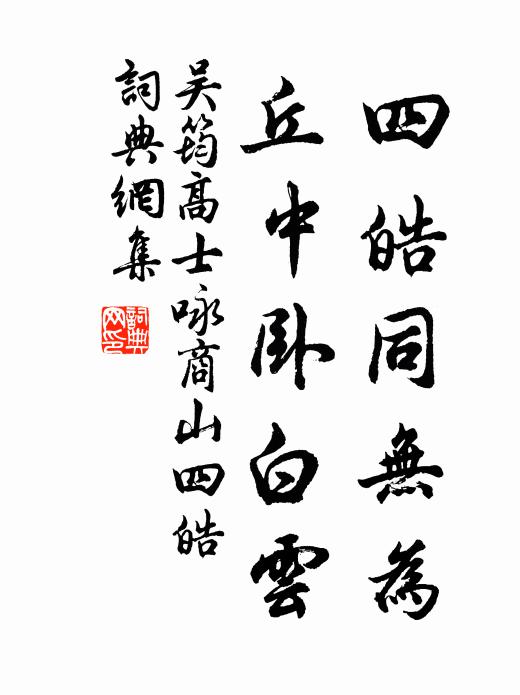 四皓同無為
丘中卧白雲
吴筠高士咏商山四皓
詞典網集
詞典网印